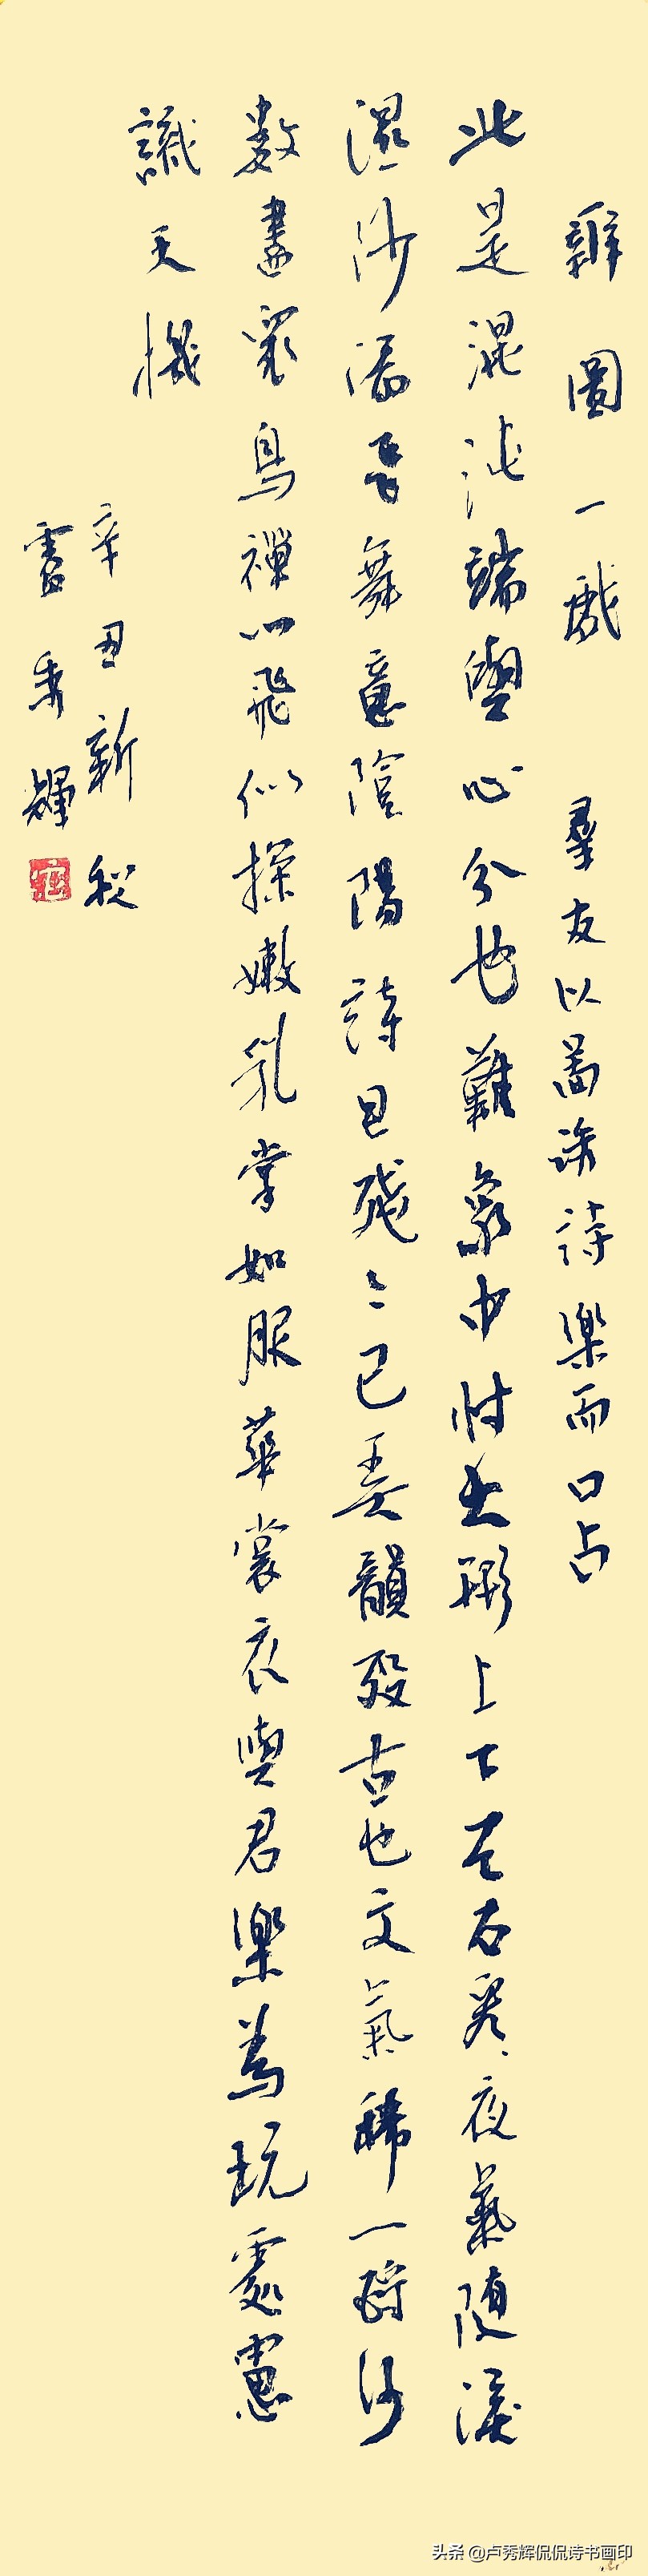 辨圖一戲 羣友以圖譣詩樂而口占
此是混沌端與心分也難象中時出形上下左右奚、夜氣隨淚
濕沙濁音舞意陰陽詩已殘〻已弄韻發古也文氣稀一醉沙
數畫裏鳥禪心飛似操嫩乳掌如服華裳衣與君樂為玩處憲
識天機
辛丑新秋
書秀輝
头条 @卢秀辉侃侃诗书画印